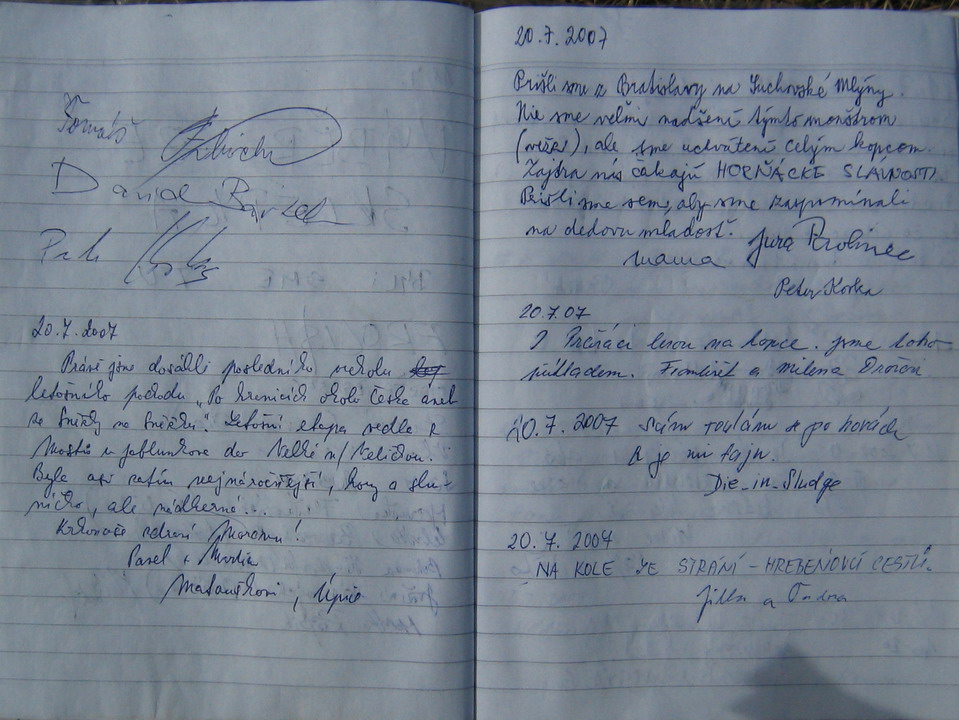 Tomáš
Daniel
Petr
20.7.2007
Právě jsme dosáhli posledního vrcholu
letošního pochodu „Po hranicích okolo Česka aneb
ze Sněžky na Sněžku". Letošní etapa vedla z
Mostů u Jablunkova do Velké n/ Veličkou.
Byla asi zatím nejnáročnější, hory a slu-
níčko, ale nádherná...
Krkonoše zdraví Moravu!
Pavel +
, Úpice
20.7.2007
Prišli sme z Bratislavy na Suchovské Mlýny.
Nie sme veľmi nadšení týmto monštrom
(veža), ale sme uchvátení celým kopcom.
Zajtra nás čakajú HORŇÁCKE SLÁVNOSTI.
Prišli sme sem, aby sme zaspomínali
na dedovu mladosť. Jura
mama
Peter
20.7.07
I Pražáci lezou na kopce. Jsme toho
příkladem. František a Milena
20.7.2007 Sám toulám se po horách
a je mi fajn.
Die_in_Sludge
20.7.2007
NA KOLE ZE STRÁNÍ - HŘEBENOVCÍ CESTU.
Jitka a Ondra